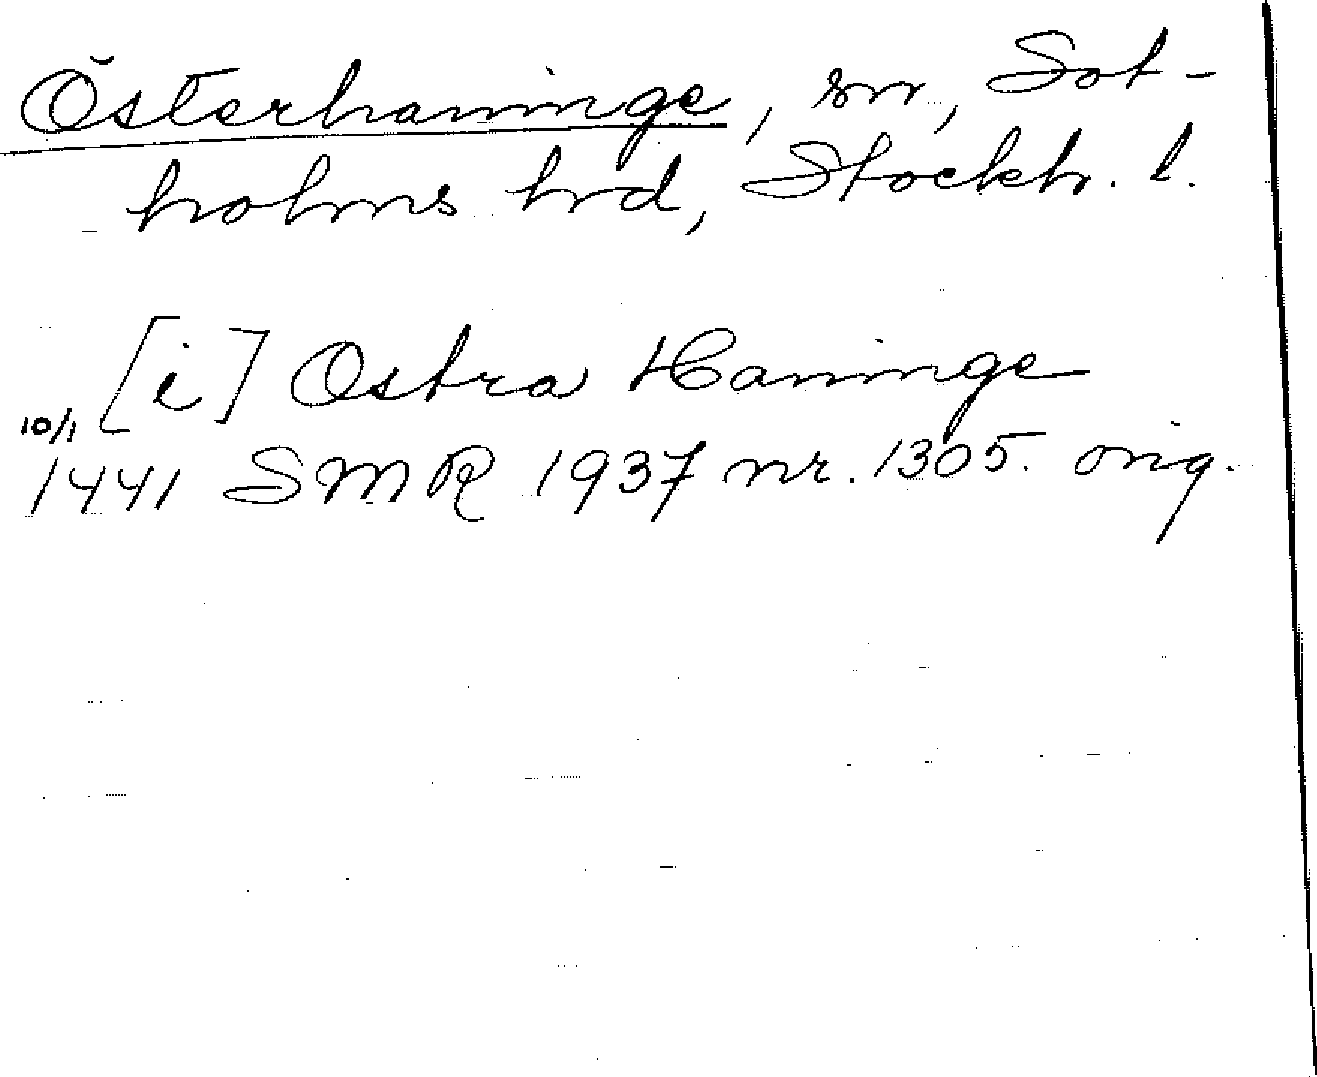 Österhaninge, sn, Sot-
holms hrd, Stockh. l.
[i] Ostra Haninge
10/1
1441 SMR 1937 nr. 1305. orig.